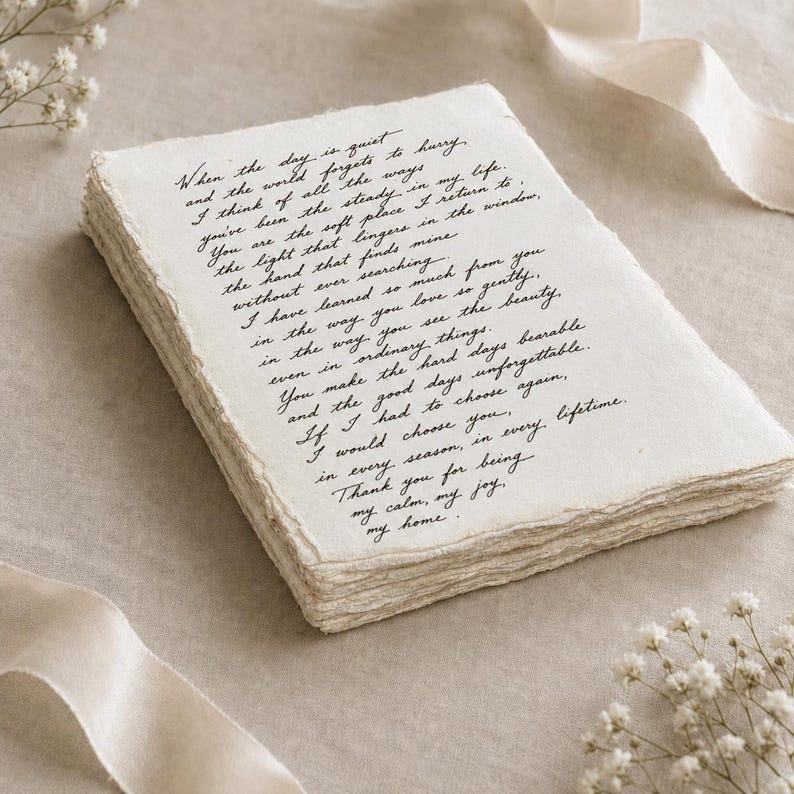 When the day is quiet
and the world forgets to hurry,
I think of all the ways
you've been the steady in my life.
You are the soft place I return to,
the light that lingers in the window,
the hand that finds mine
without ever searching.
I have learned so much from you
in the way you love so gently,
in the way you see the beauty,
even in ordinary things.
You make the hard days bearable
and the good days unforgettable.
If I had to choose again,
I would choose you,
in every season, in every lifetime.
Thank you for being
my calm, my joy,
my home.